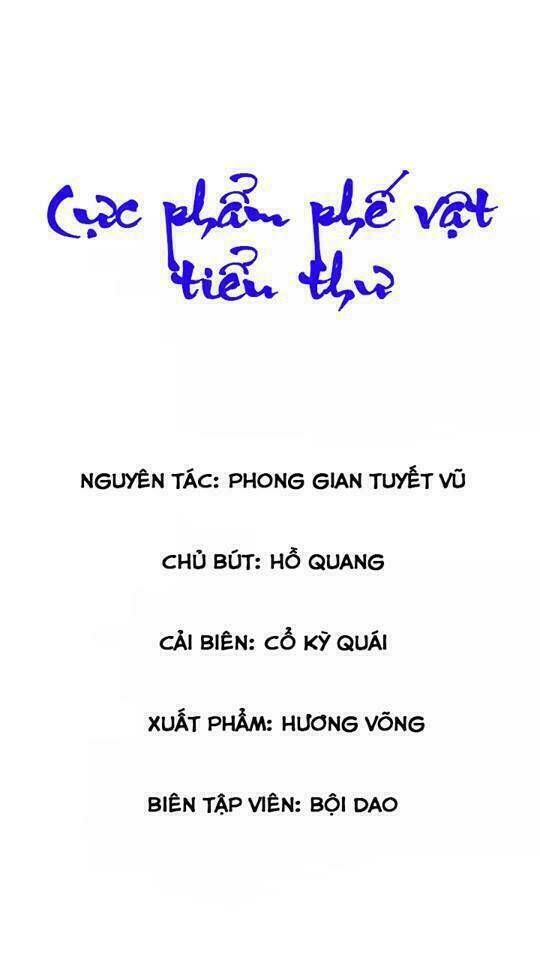 Cực phẩm phế vật
tiểu thư
NGUYÊN TÁC: PHONG GIAN TUYẾT VŨ
CHỦ BÚT: HỒ QUANG
CẢI BIÊN: CỔ KỲ QUÁI
XUẤT PHẨM: HƯƠNG VÕNG
BIÊN TẬP VIÊN: BỘI DAO